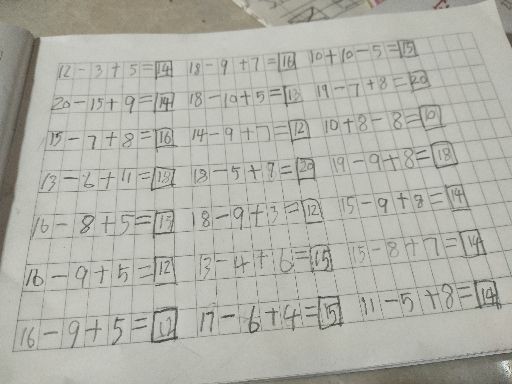 12-3+5=14 18-9+7=16 10+10-5=15
20-15+9=14 18-10+5=13 19-7+8=20
15-7+8=16 14-9+7=12 10+8-8=10
13-6+11=18 18-5+7=20 19-9+8=18
16-8+5=13 18-9+3=12 15-9+8=14
16-9+5=12 13-4+6=15 15-8+7=14
16-9+5=12 17-6+4=15 11-5+8=14